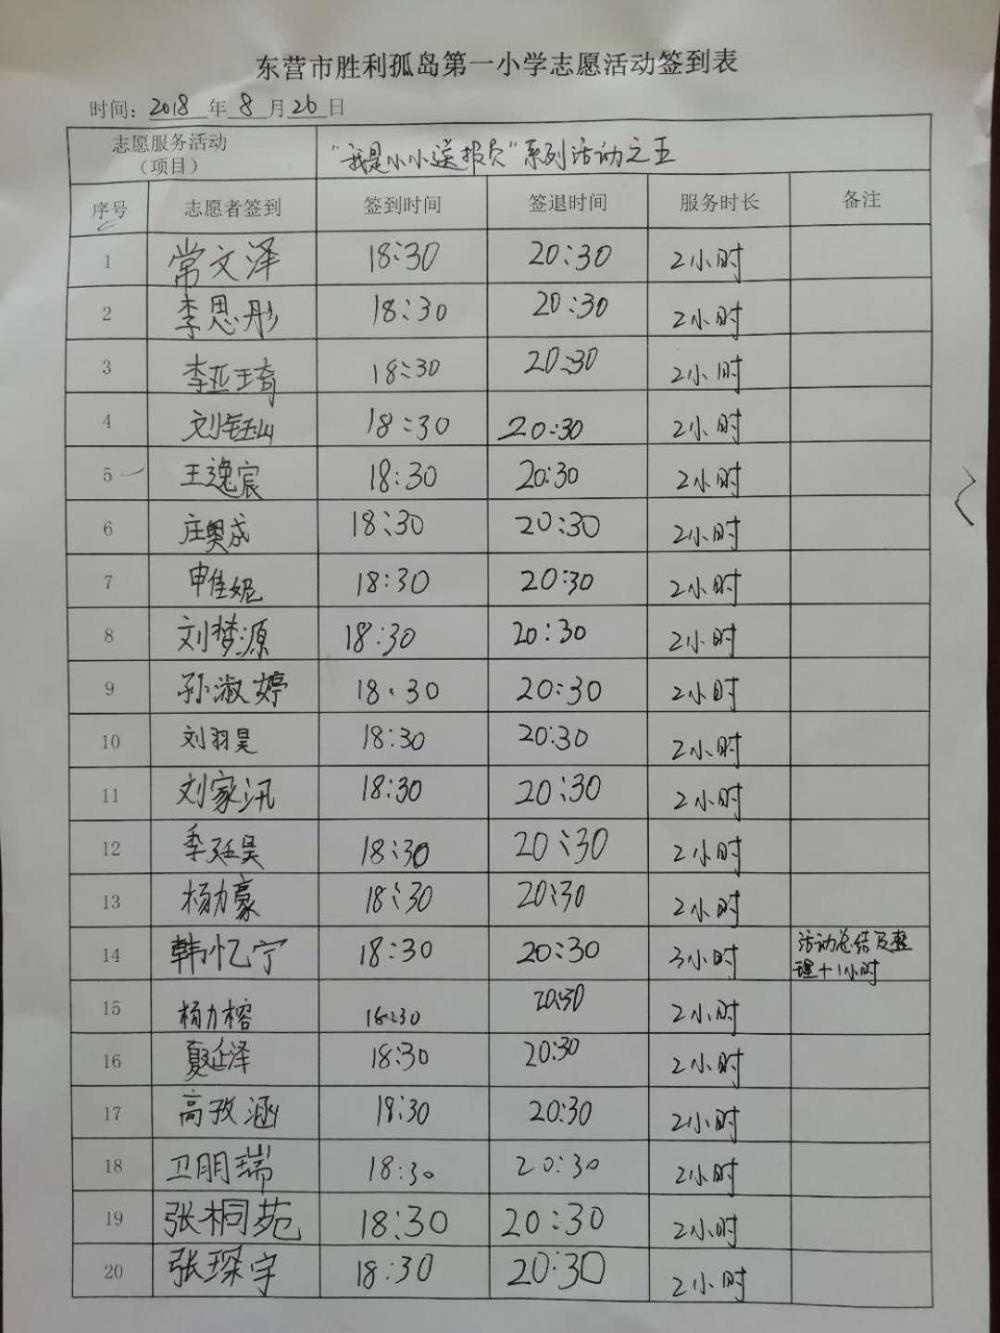 东营市胜利孤岛第一小学志愿活动签到表
时间：2018 年 8 月 26 日
志愿服务活动（项目） “我是小小送报员”系列活动之五
序号 志愿者签到 签到时间 签退时间 服务时长 备注
1 常文泽 18:30 20:30 2小时
2 李思彤 18:30 20:30 2小时
3 李亚琦 18:30 20:30 2小时
4 刘钰山 18:30 20:30 2小时
5 王逸宸 18:30 20:30 2小时
6 庄奥成 18:30 20:30 2小时
7 申佳妮 18:30 20:30 2小时
8 刘梦源 18:30 20:30 2小时
9 孙淑婷 18:30 20:30 2小时
10 刘羽昊 18:30 20:30 2小时
11 刘家汛 18:30 20:30 2小时
12 季廷昊 18:30 20:30 2小时
13 杨力豪 18:30 20:30 2小时
14 韩忆宁 18:30 20:30 3小时 活动总结及整理+1小时
15 杨力榕 18:30 20:30 2小时
16 夏延泽 18:30 20:30 2小时
17 高孜涵 18:30 20:30 2小时
18 卫朋瑞 18:30 20:30 2小时
19 张桐苑 18:30 20:30 2小时
20 张琛宇 18:30 20:30 2小时